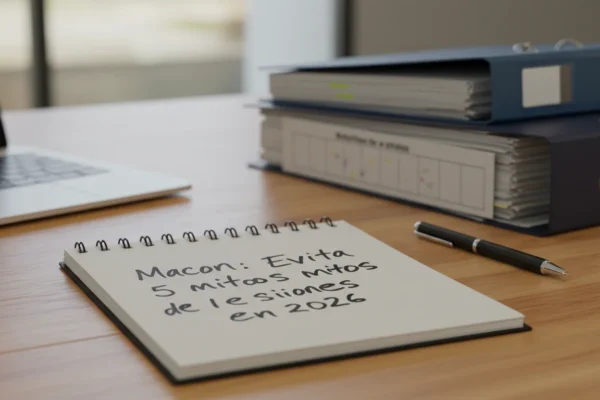 Macon: Evita
5 mitoos mitos
de le siiones
en 2026